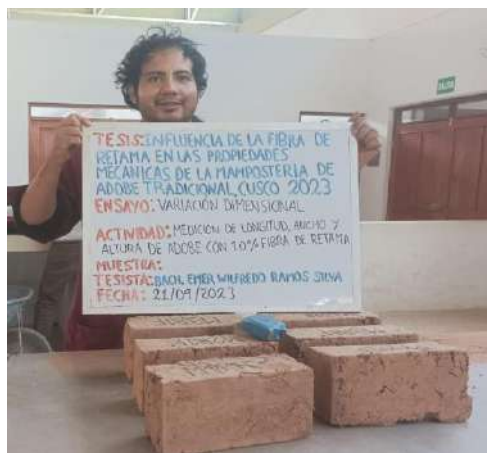 SALIDA
TESIS: INFLUENCIA DE LA FIBRA DE
RETAMA EN LAS PROPIEDADES
MECÁNICAS DE LA MAMPOSTERIA DE
ADOBE TRADICIONAL, CUSCO 2023
ENSAYO: VARIACIÓN DIMENSIONAL
ACTIVIDAD: MEDICION DE LONGITUD, ANCHO Y
ALTURA DE ADOBE CON 1.0% FIBRA DE RETAMA
MUESTRA:
TESISTA: BACH. EMER WILFREDO RAMOS SILVA
FECHA: 21/09/2023